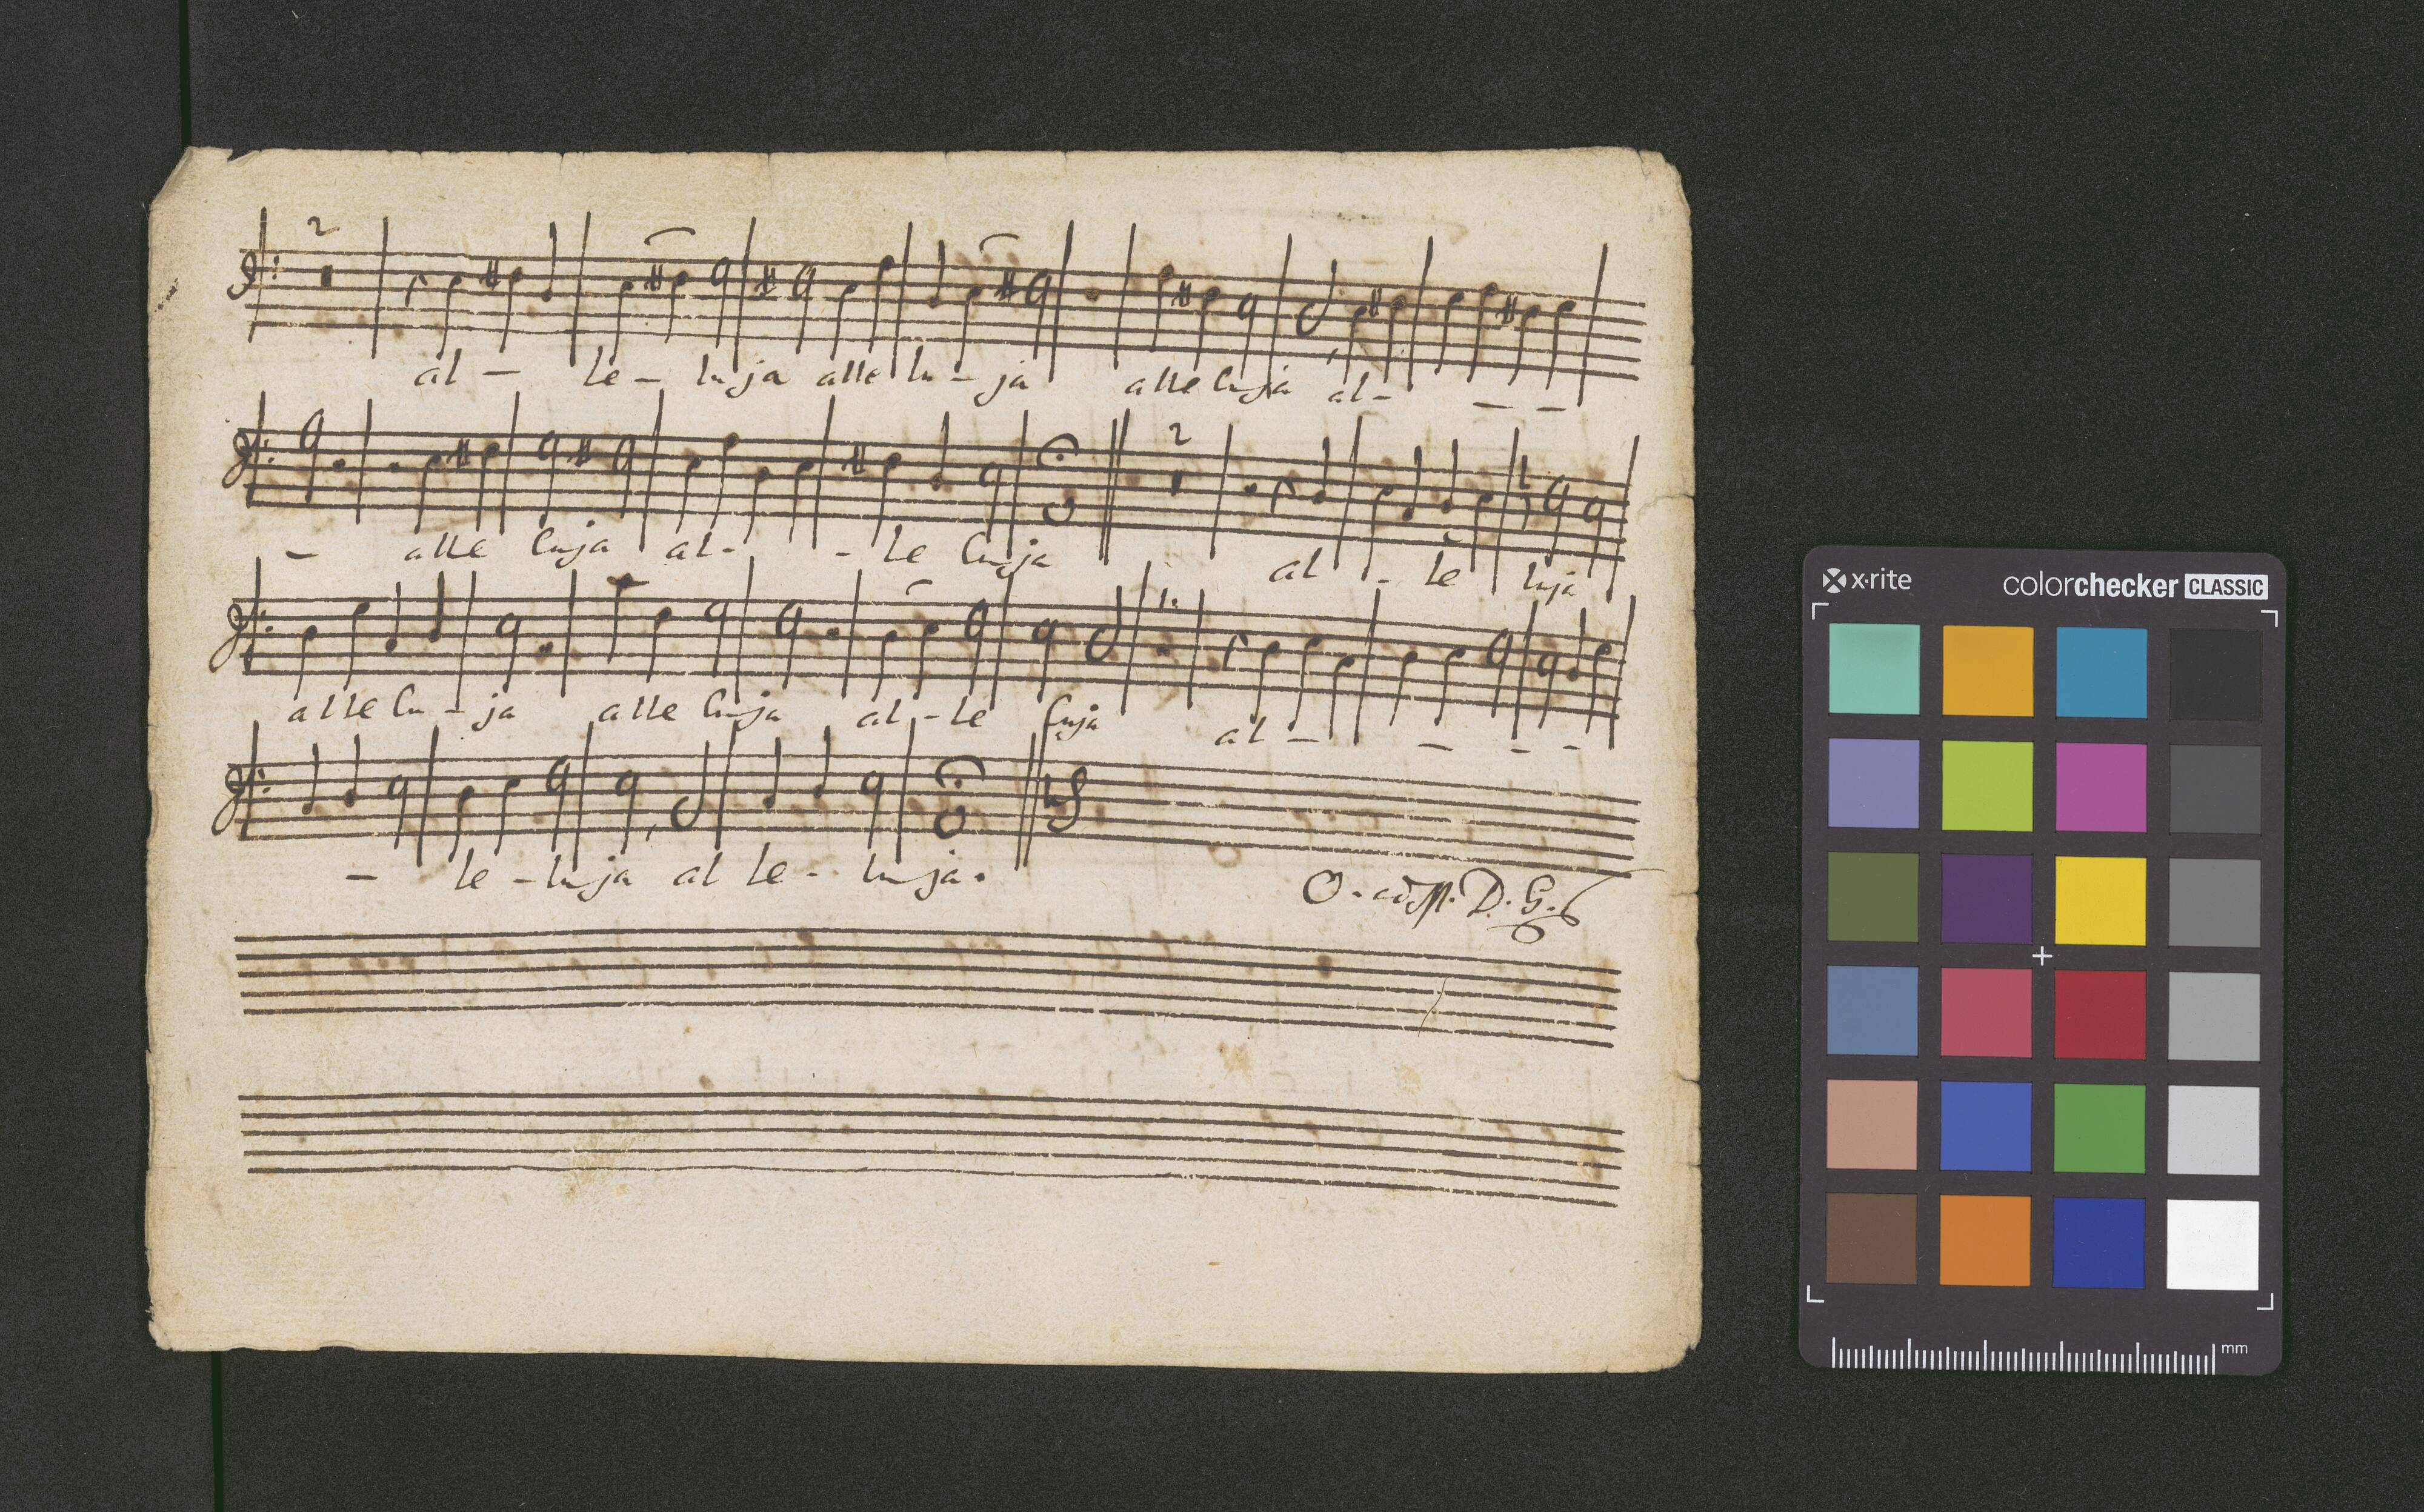 2
al - le - luja alle lu - ja alle luja al - - -
2
- alle luja al - - le luja al - le luja
1.
alle lu - ja alle luja al - le luja al - - - -
- le - luja al le - luja.
O. a. M. D. G.
x·rite colorchecker CLASSIC
mm